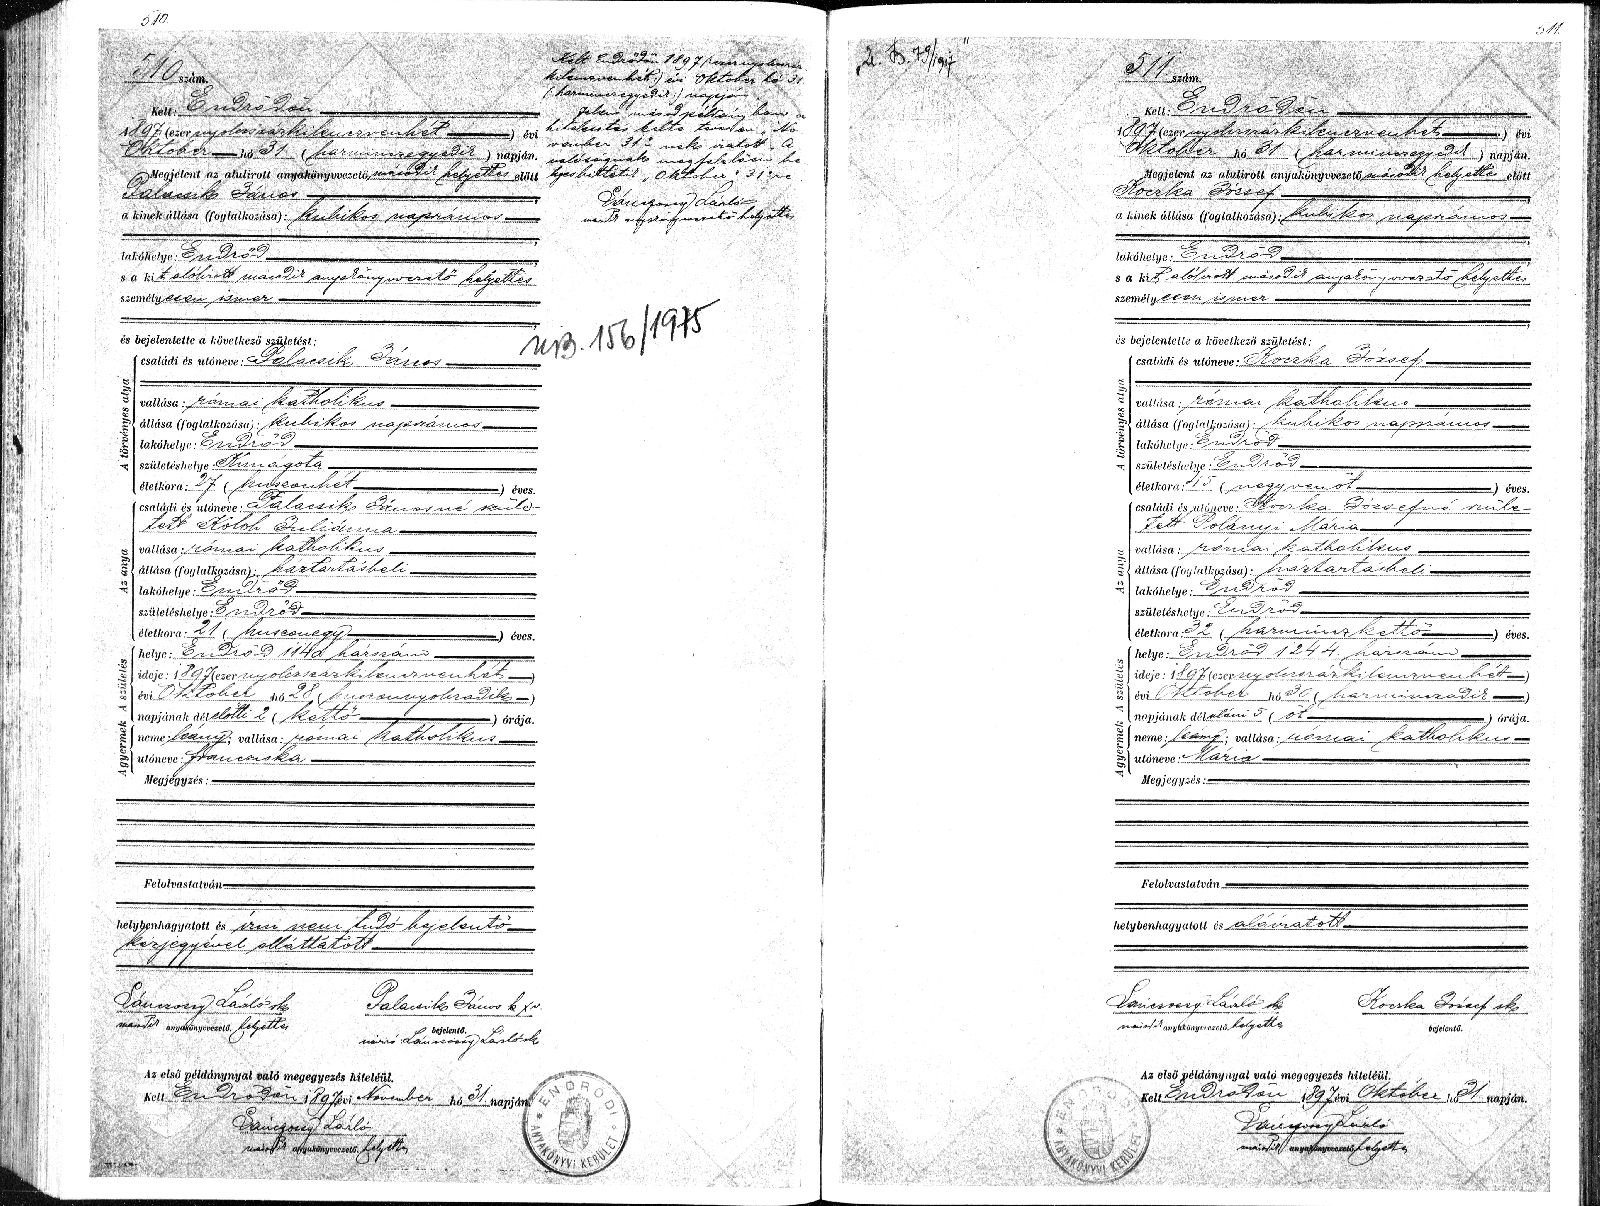 510.
510 szám.
Kelt: Endrődön
1897 (ezer nyolcszázkilenczvenhét) évi
Október hó 31 (harminczegyedik) napján.
Megjelent az alulirott anyakönyvvezető második helyettes előtt
Palacsik János
a kinek állása (foglalkozása): kubikos napszámos
lakóhelye: Endrőd
s a kit alólirott második anyakönyvvezető helyettes
személyesen ismer
és bejelentette a következő születést:
A törvényes atya
családi és utóneve: Palacsik János
vallása: római katholikus
állása (foglalkozása): kubikos napszámos
lakóhelye: Endrőd
születéshelye: Kunágota
életkora: 27 (huszonhét) éves.
Az anya
családi és utóneve: Palacsik Jánosné szüle-
tett Juliánna
vallása: római katholikus
állása (foglalkozása): háztartásbeli
lakóhelye: Endrőd
születéshelye: Endrőd
életkora: 21 (huszonegy) éves.
A születés
helye: Endrőd házszám
ideje: 1897 (ezer nyolcszázkilenczvenhét
évi Október hó 28 (huszonnyolczadik)
napjának délelőtti 2 (kettő) órája.
A gyermek
neme: leány; vallása: római katholikus
utóneve: Franciska
Megjegyzés:
Felolvastatván
helybenhagyatott és írni nem tudó bejelentő
kézjegyével elláttatott
Lánczossy László sk
második anyakönyvvezető helyettes
Palacsik János k
bejelentő.
Lánczossy László sk
Az első példánynyal való megegyezés hiteléül.
Kelt Endrődön 1897 évi November hó 31 napján.
Lánczossy László
második anyakönyvvezető helyettes
ENDRŐDI ANYAKÖNYVI KERÜLET
Kelt Endrődön 1897 (ezernyolcszáz
kilenczvenhét) évi Október hó 31
(harminczegyedik) napján.
Jelen másodpéldányban a
hitelesítés kelte tévesen No
vember 31-nek iratott. A
valóságnak megfelelően he
lyesbíttetik „Október" 31-re.
Lánczossy László
anyakönyvvezető helyettes
156/1975
511.
511 szám.
Kelt: Endrődön
1897 (ezer nyolcszázkilenczvenhét) évi
Október hó 31 (harminczegyedik) napján.
Megjelent az alulirott anyakönyvvezető második helyettes előtt
Koczka József
a kinek állása (foglalkozása): kubikos napszámos
lakóhelye: Endrőd
s a kit alólirott második anyakönyvvezető helyettes
személyesen ismer
és bejelentette a következő születést:
A törvényes atya
családi és utóneve: Koczka József
vallása: római katholikus
állása (foglalkozása): kubikos napszámos
lakóhelye: Endrőd
születéshelye: Endrőd
életkora: 45 (negyvenöt) éves.
Az anya
családi és utóneve: Koczka Józsefné szüle-
tett Polányi Mária
vallása: római katholikus
állása (foglalkozása): háztartásbeli
lakóhelye: Endrőd
születéshelye: Endrőd
életkora: 32 (harminczkettő) éves.
A születés
helye: Endrőd 1244 házszám
ideje: 1897 (ezer nyolcszázkilenczvenhét)
évi Október hó 30 (harminczadik)
napjának délutáni 5 (öt) órája.
A gyermek
neme: leány; vallása: római katholikus
utóneve: Mária
Megjegyzés:
Felolvastatván
helybenhagyatott és aláiratott
Lánczossy László sk
második anyakönyvvezető helyettes
Koczka József sk
bejelentő.
Az első példánynyal való megegyezés hiteléül.
Kelt Endrődön 1897 évi Október hó 31 napján.
Lánczossy László
második anyakönyvvezető helyettes
ENDRŐDI ANYAKÖNYVI KERÜLET